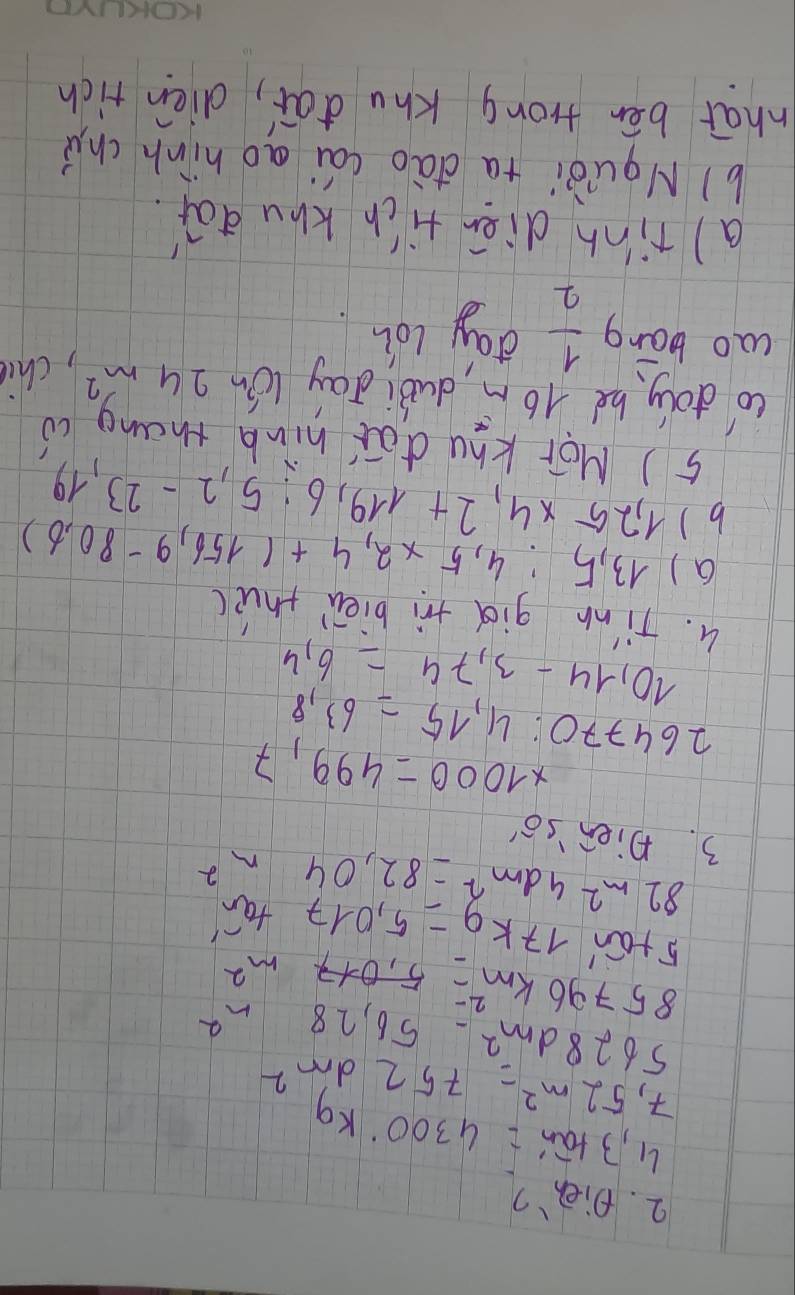 2. Điền?
4,3 tấn = 4300 kg
7,52 m² = 752 dm²
5628 dm² = 56,28 m²
85796 km² = 5,017 m²
5 tấn 17 kg = 5,017 tấn
82 m² 4 dm² = 82,04 m²
3. Điền số
×1000 = 499,7
264770 : 4,15 = 63,8
10,14 - 3,74 = 6,4
4. Tính giá trị biểu thức
a) 13,5 : 4,5 × 2,4 + (156,9 - 80,6)
b) 1,25 × 4,2 + 119,6 : 5,2 - 23,19
5) Một khu đất hình thang có
có đáy bé 16 m dưới đáy lớn 24 m², chiề
cao bằng 1/2 đáy lớn
a) Tính diện tích khu đất.
b) Người ta đào cái ao hình chữ
nhật bên trong khu đất, diện tích
KOKUYO